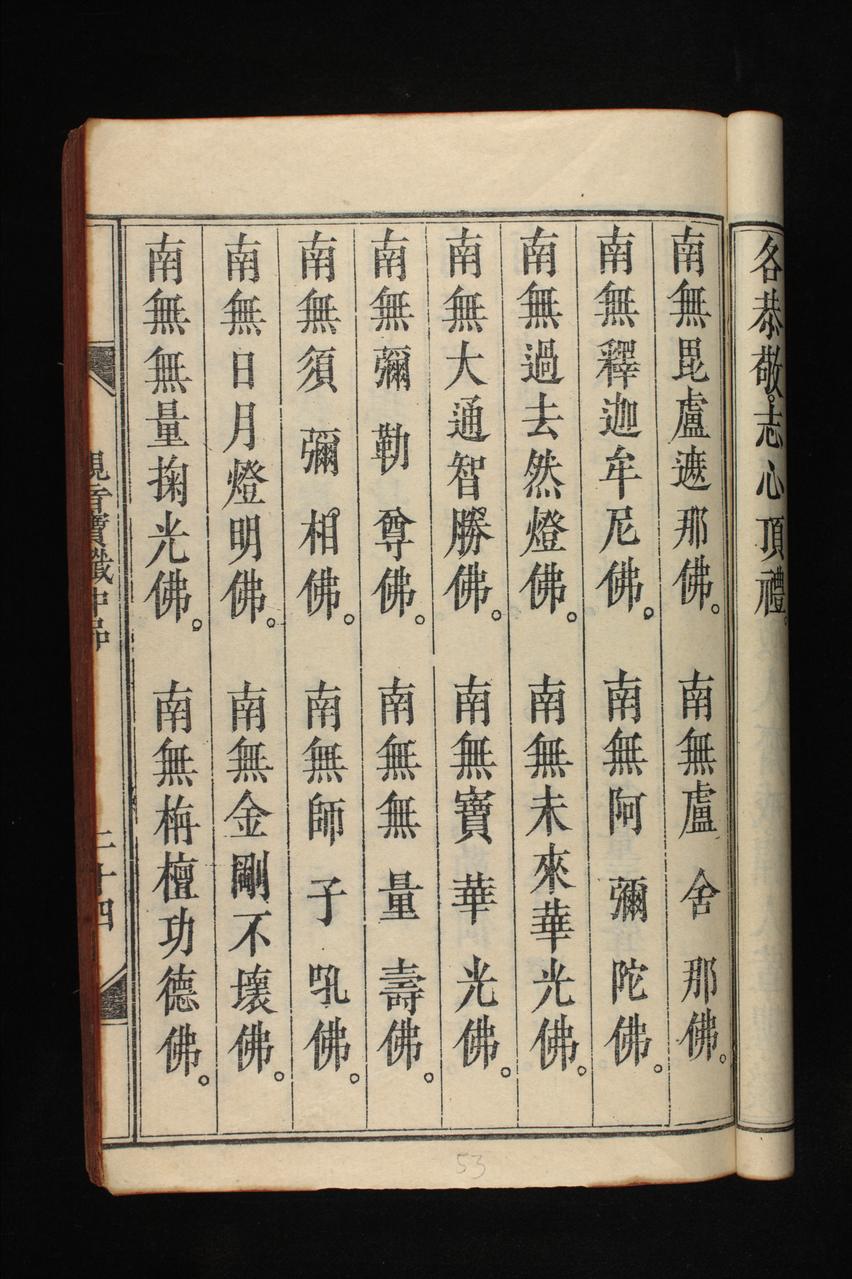 各恭敬。志心頂禮。
南無毘盧遮那佛。南無盧舍那佛。
南無釋迦牟尼佛。南無阿彌陀佛。
南無過去然燈佛。南無未來華光佛。
南無大通智勝佛。南無寶華光佛。
南無彌勒尊佛。南無無量壽佛。
南無須彌相佛。南無師子吼佛。
南無日月燈明佛。南無金剛不壞佛。
南無無量掬光佛。南無栴檀功德佛。
觀音寶懴中卷
二十四
53